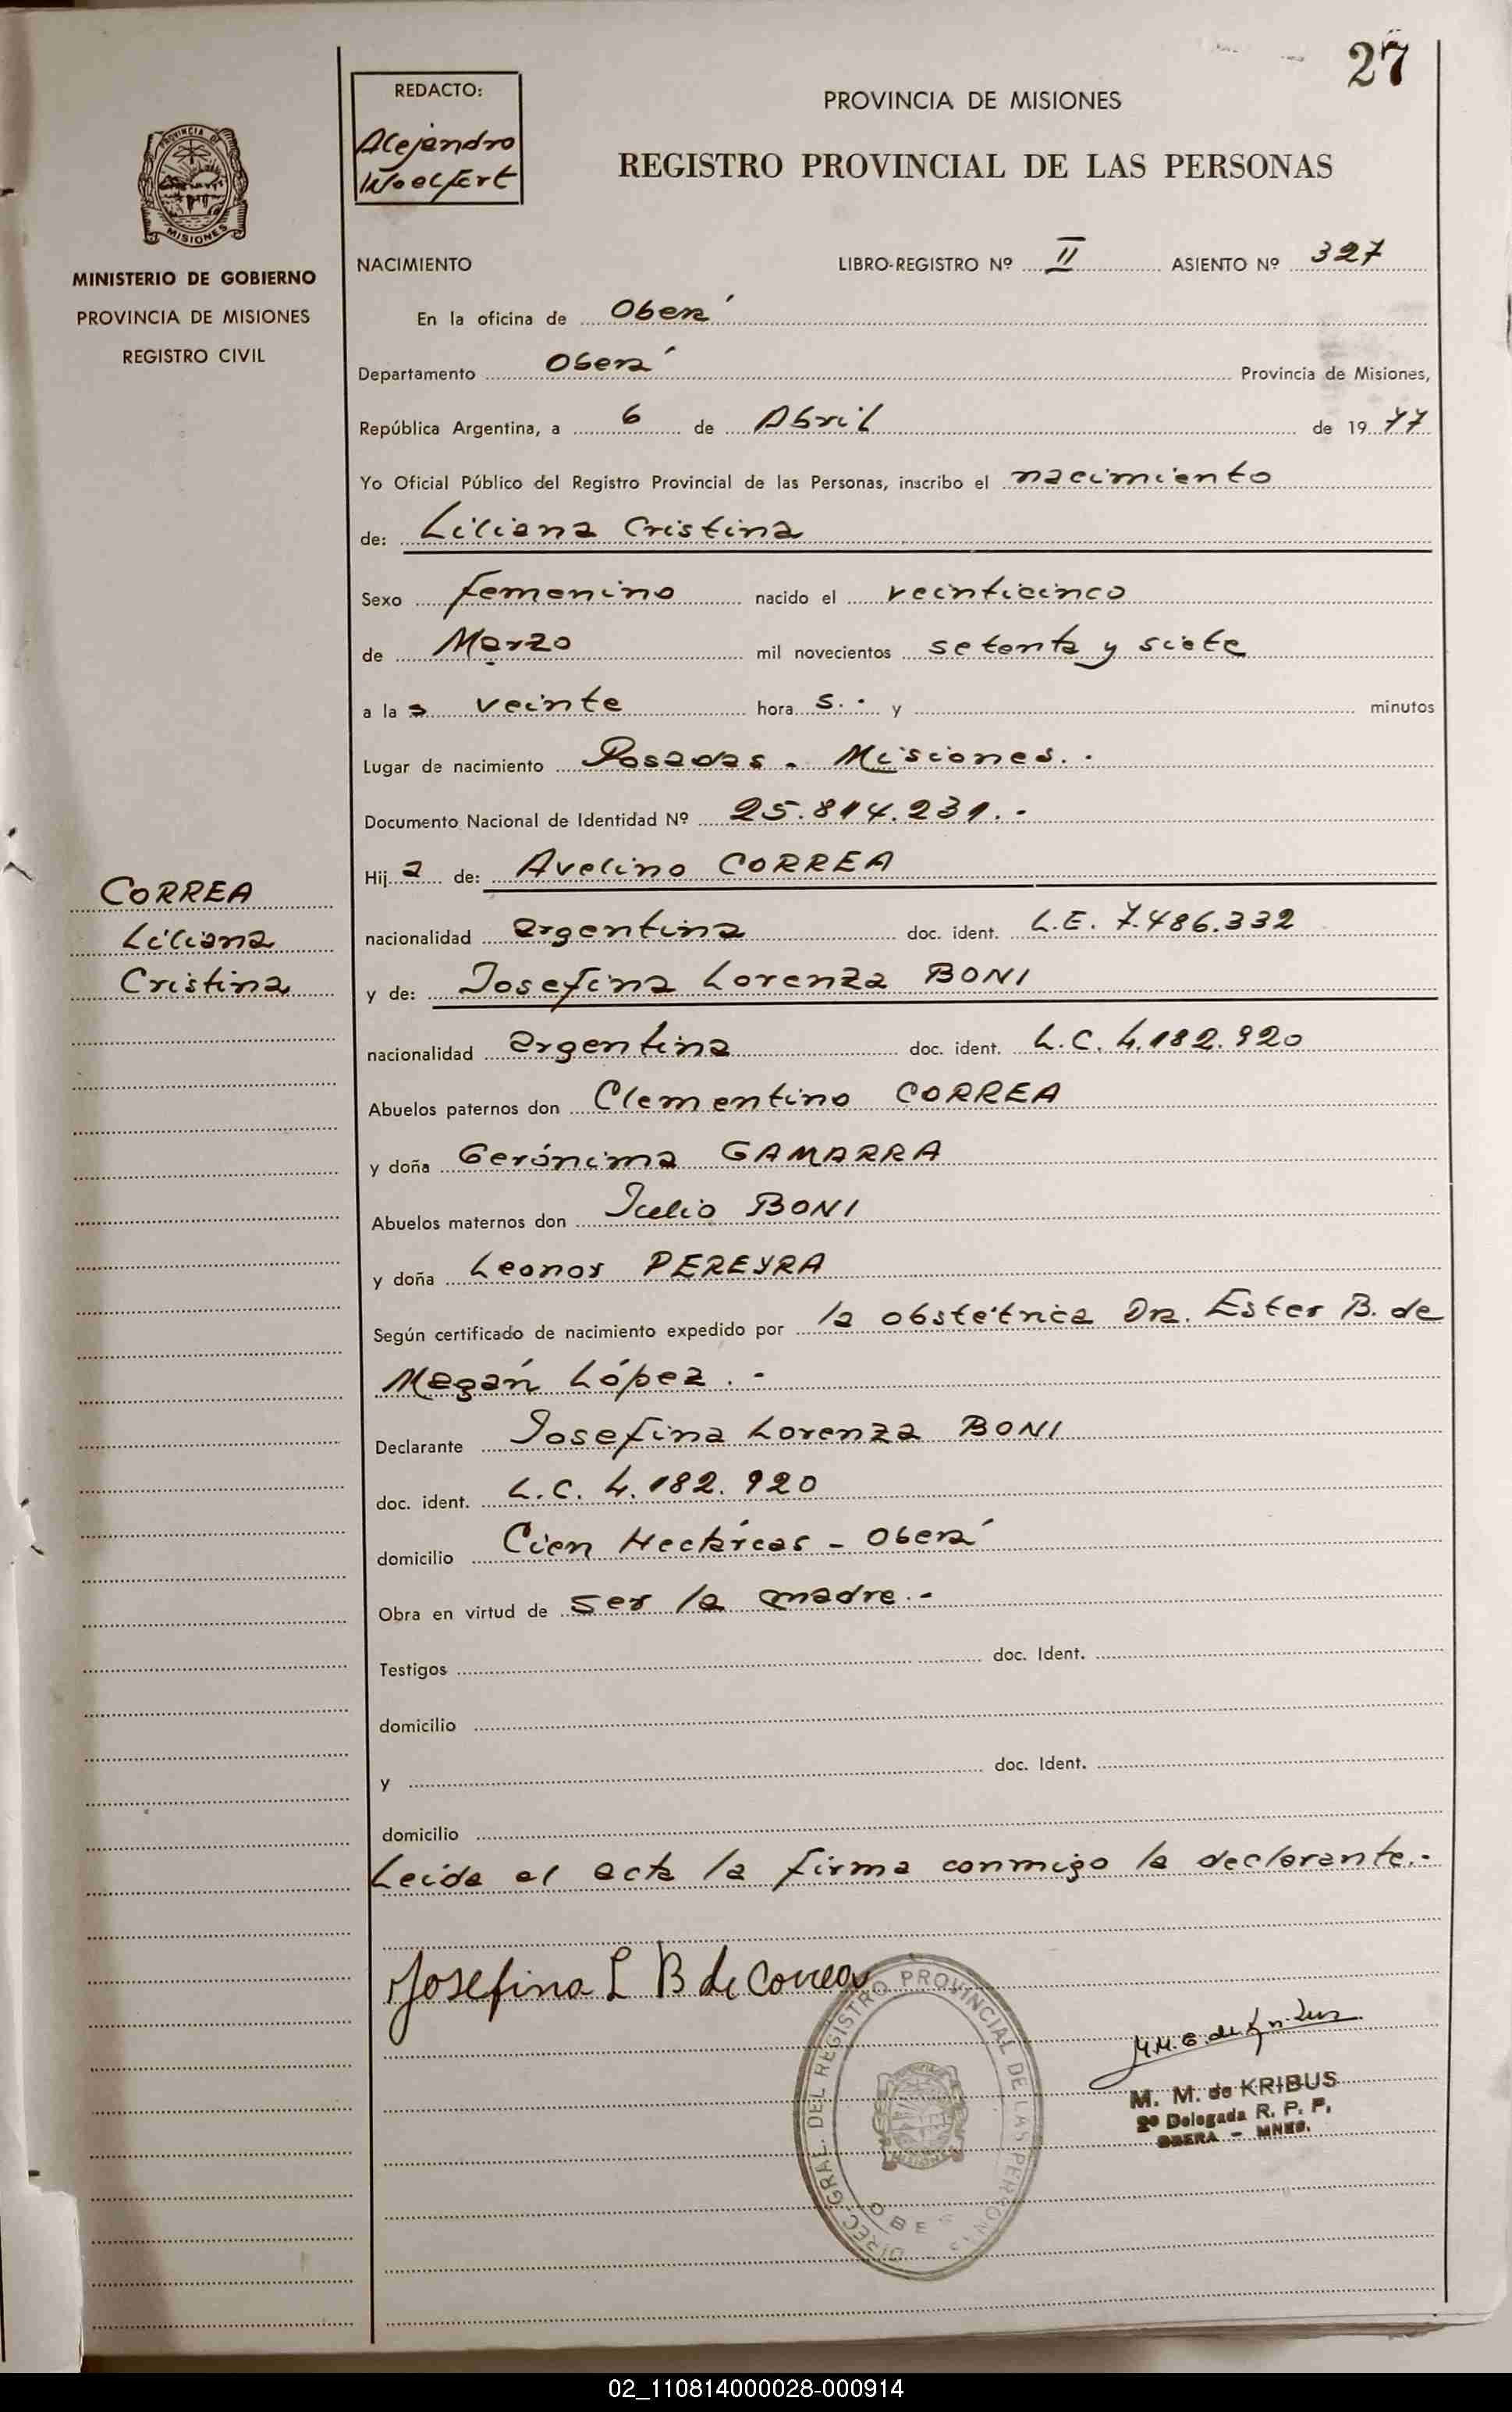 27
REDACTO:
Alejandro
Woelfert
PROVINCIA DE MISIONES
REGISTRO PROVINCIAL DE LAS PERSONAS
PROVINCIA DE
MISIONES
MINISTERIO DE GOBIERNO
PROVINCIA DE MISIONES
REGISTRO CIVIL
NACIMIENTO LIBRO-REGISTRO Nº II ASIENTO Nº 327
En la oficina de Oberá
Departamento Oberá Provincia de Misiones,
República Argentina, a 6 de Abril de 1977
Yo Oficial Público del Registro Provincial de las Personas, inscribo el nacimiento
de: Liliana Cristina
Sexo femenino nacido el veinticinco
de Marzo mil novecientos setenta y siete
a las veinte horas.- y minutos
Lugar de nacimiento Posadas - Misiones.-
Documento Nacional de Identidad Nº 25.814.231.-
Hija de: Avelino CORREA
CORREA
Liliana
Cristina
nacionalidad argentina doc. ident. L.E. 7.486.332
y de: Josefina Lorenza BONI
nacionalidad argentina doc. ident. L.C. 4.182.920
Abuelos paternos don Clementino CORREA
y doña Gerónima GAMARRA
Abuelos maternos don Julio BONI
y doña Leonor PEREYRA
Según certificado de nacimiento expedido por la obstétrica Dra. Ester B. de
Magán López.-
Declarante Josefina Lorenza BONI
doc. ident. L.C. 4.182.920
domicilio Cien Hectáreas - Oberá
Obra en virtud de ser la madre.-
Testigos doc. Ident.
domicilio
y doc. Ident.
domicilio
Leída el acta la firma conmigo la declarante.-
Josefina L B de Correa
DIREC. GRAL. DEL REGISTRO PROVINCIAL DE LAS PERSONAS
MISIONES
M. M. de KRIBUS
2º Delegada R. P. P.
OBERA - MNES.
02_110814000028-000914